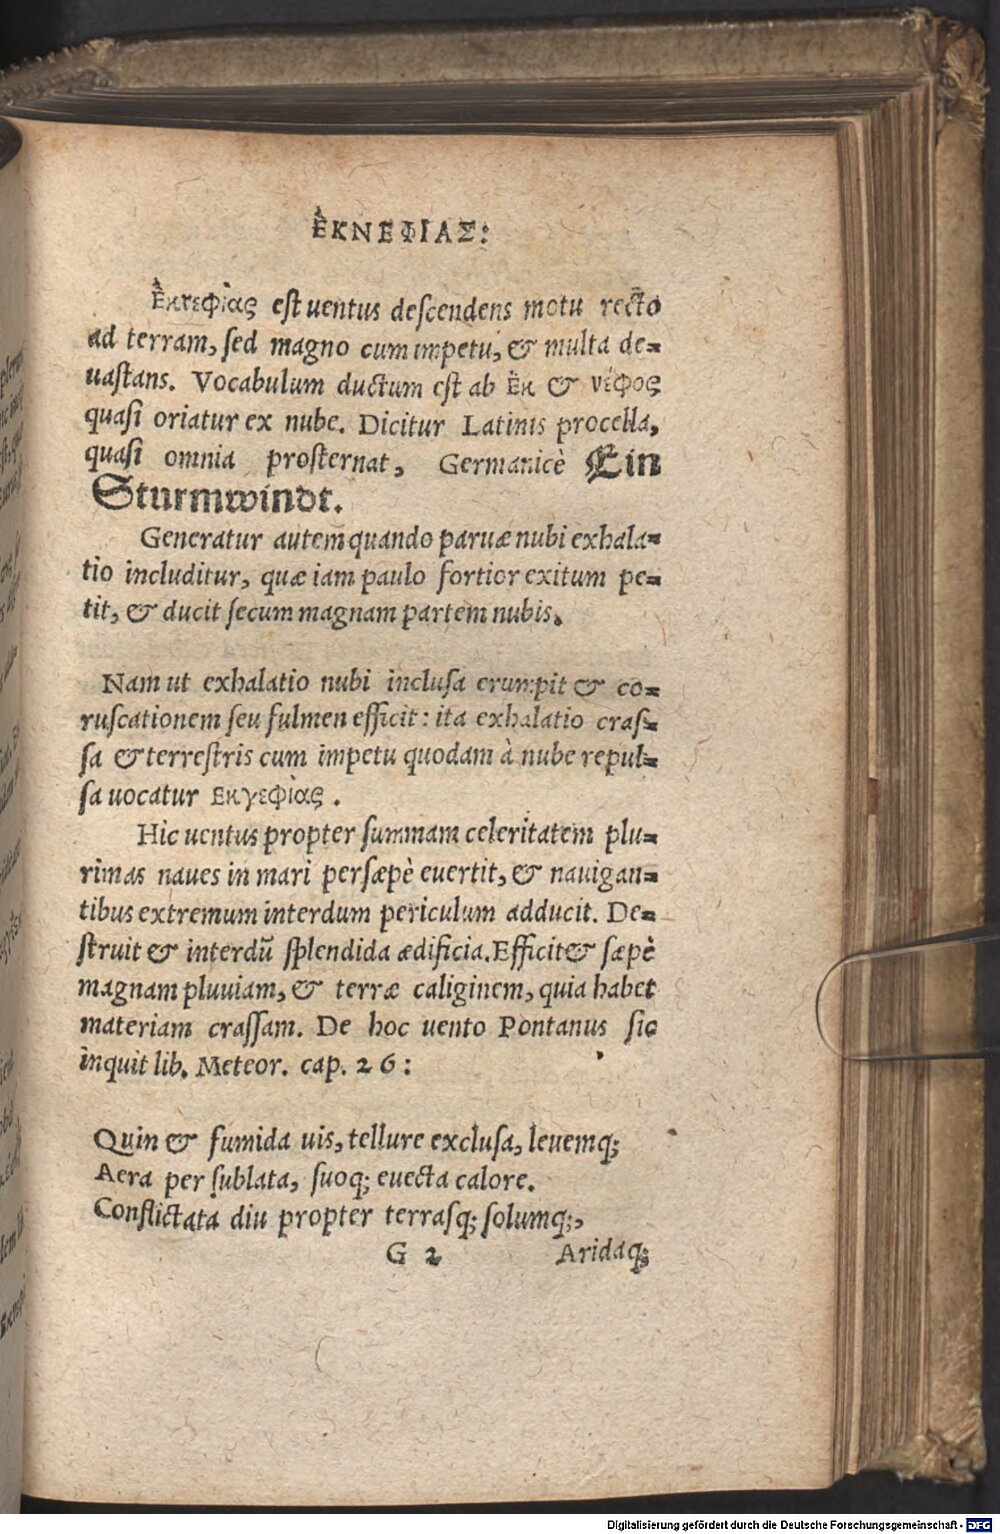 ἘΚΝΕΦΙΑΣ:
Ἐκνεφίας est uentus descendens motu recto
ad terram, sed magno cum impetu, & multa de=
uastans. Vocabulum ductum est ab ἐκ & νέφος
quasi oriatur ex nube. Dicitur Latinis procella,
quasi omnia prosternat, Germanicè Ein
Sturmwindt.
Generatur autem quando paruæ nubi exhala=
tio includitur, quæ iam paulo fortior exitum pe=
tit, & ducit secum magnam partem nubis.
Nam ut exhalatio nubi inclusa erumpit & co=
ruscationem seu fulmen efficit: ita exhalatio cras=
sa & terrestris cum impetu quodam à nube repul=
sa uocatur Εκνεφίας.
Hic uentus propter summam celeritatem plu=
rimas naues in mari persæpè euertit, & nauigan=
tibus extremum interdum periculum adducit. De=
struit & interdũ splendida ædificia. Efficit & sæpè
magnam pluuiam, & terræ caliginem, quia habet
materiam crassam. De hoc uento Pontanus sic
inquit lib. Meteor. cap. 26:
Quin & fumida uis, tellure exclusa, leuemq;
Aera per sublata, suoq; euecta calore.
Conflictata diu propter terrasq; solumq;,
G 2 Aridaq;
Digitalisierung gefördert durch die Deutsche Forschungsgemeinschaft - DFG